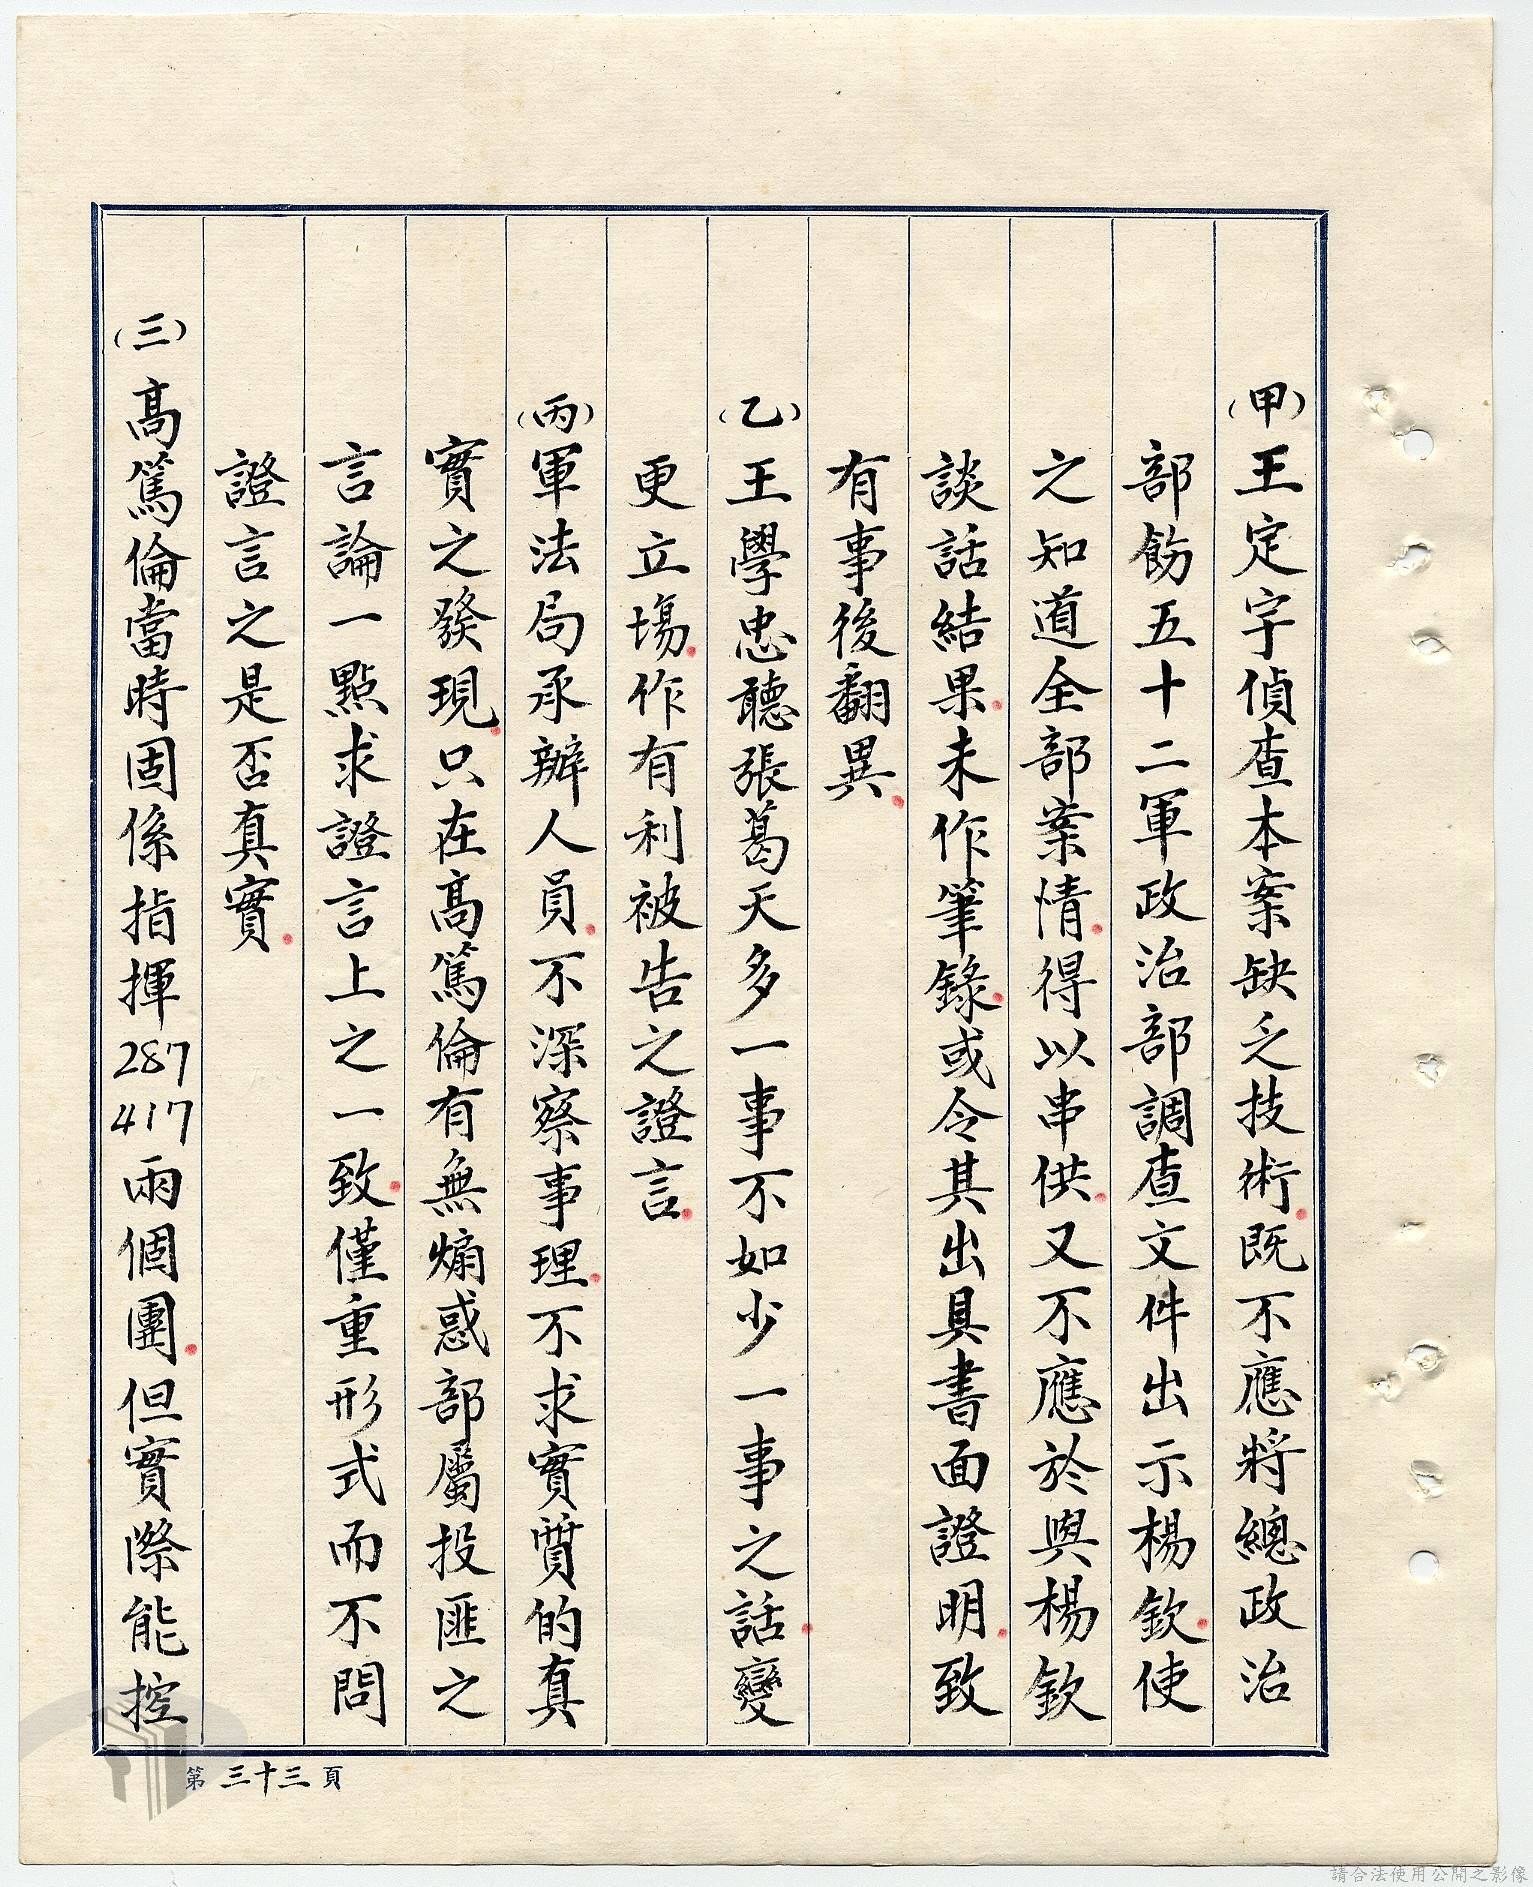 (甲)王定字偵查本案缺乏技術.既不應將總政治
部飭五十二軍政治部調查文件出示楊欽.使
之知道全部案情.得以串供.又不應於與楊欽
談話結果.未作筆錄.或令其出具書面證明.致
有事後翻異.
(乙)王學忠聽張葛天多一事不如少一事之話.變
更立場.作有利被告之證言.
(丙)軍法局承辦人員.不深察事理.不求實質的真
實之發現.只在高篤倫有無煽惑部屬投匪之
言論一點求證言上之一致.僅重形式而不問
證言之是否真實.
(三)高篤倫當時固係指揮287 417兩個團.但實際能控
第三十三頁
請合法使用公開之影像